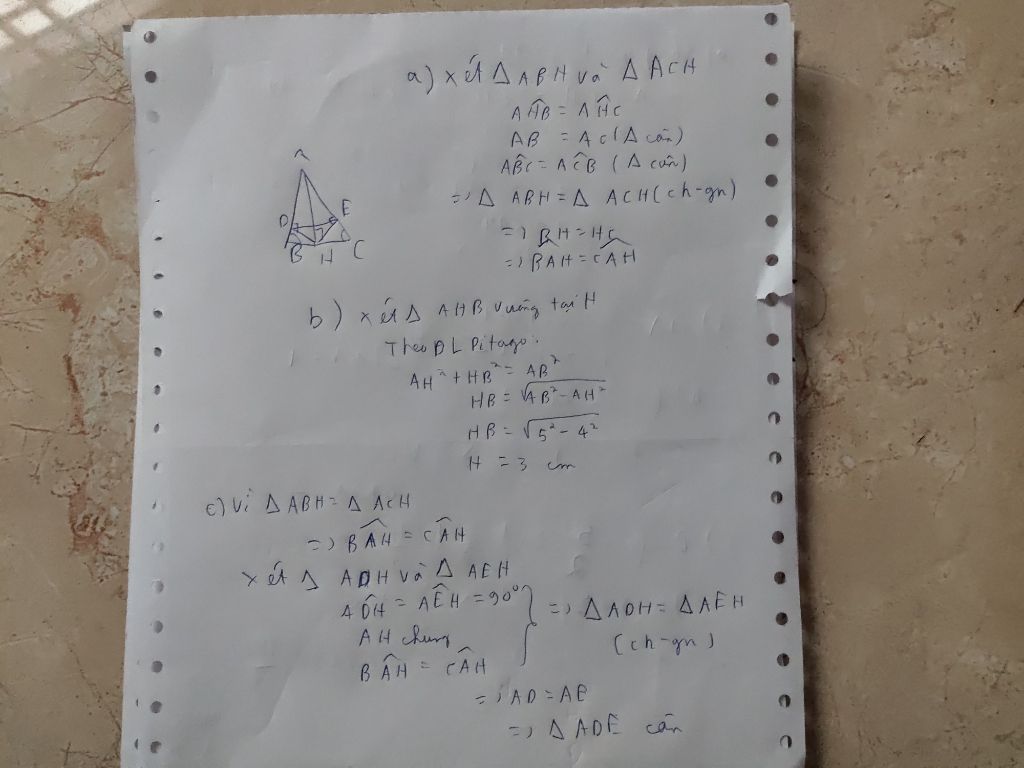 a) xét Δ ABH và Δ ACH
AĤB = AĤC
AB = AC (Δ cân)
AB̂C = AĈB (Δ cân)
=> Δ ABH = Δ ACH (ch-gn)
=> BH = HC
=> BÂH = CÂH
A
D
E
B
H
C
b) xét Δ AHB vuông tại H
Theo ĐL Pitago:
AH² + HB² = AB²
HB = √AB² - AH²
HB = √5² - 4²
H = 3 cm
c) Vì Δ ABH = Δ ACH
=> BÂH = CÂH
Xét Δ ADH và Δ AEH
AD̂H = AÊH = 90°
AH chung
BÂH = CÂH
=> Δ ADH = Δ AEH
(ch-gn)
=> AD = AE
=> Δ ADE cân